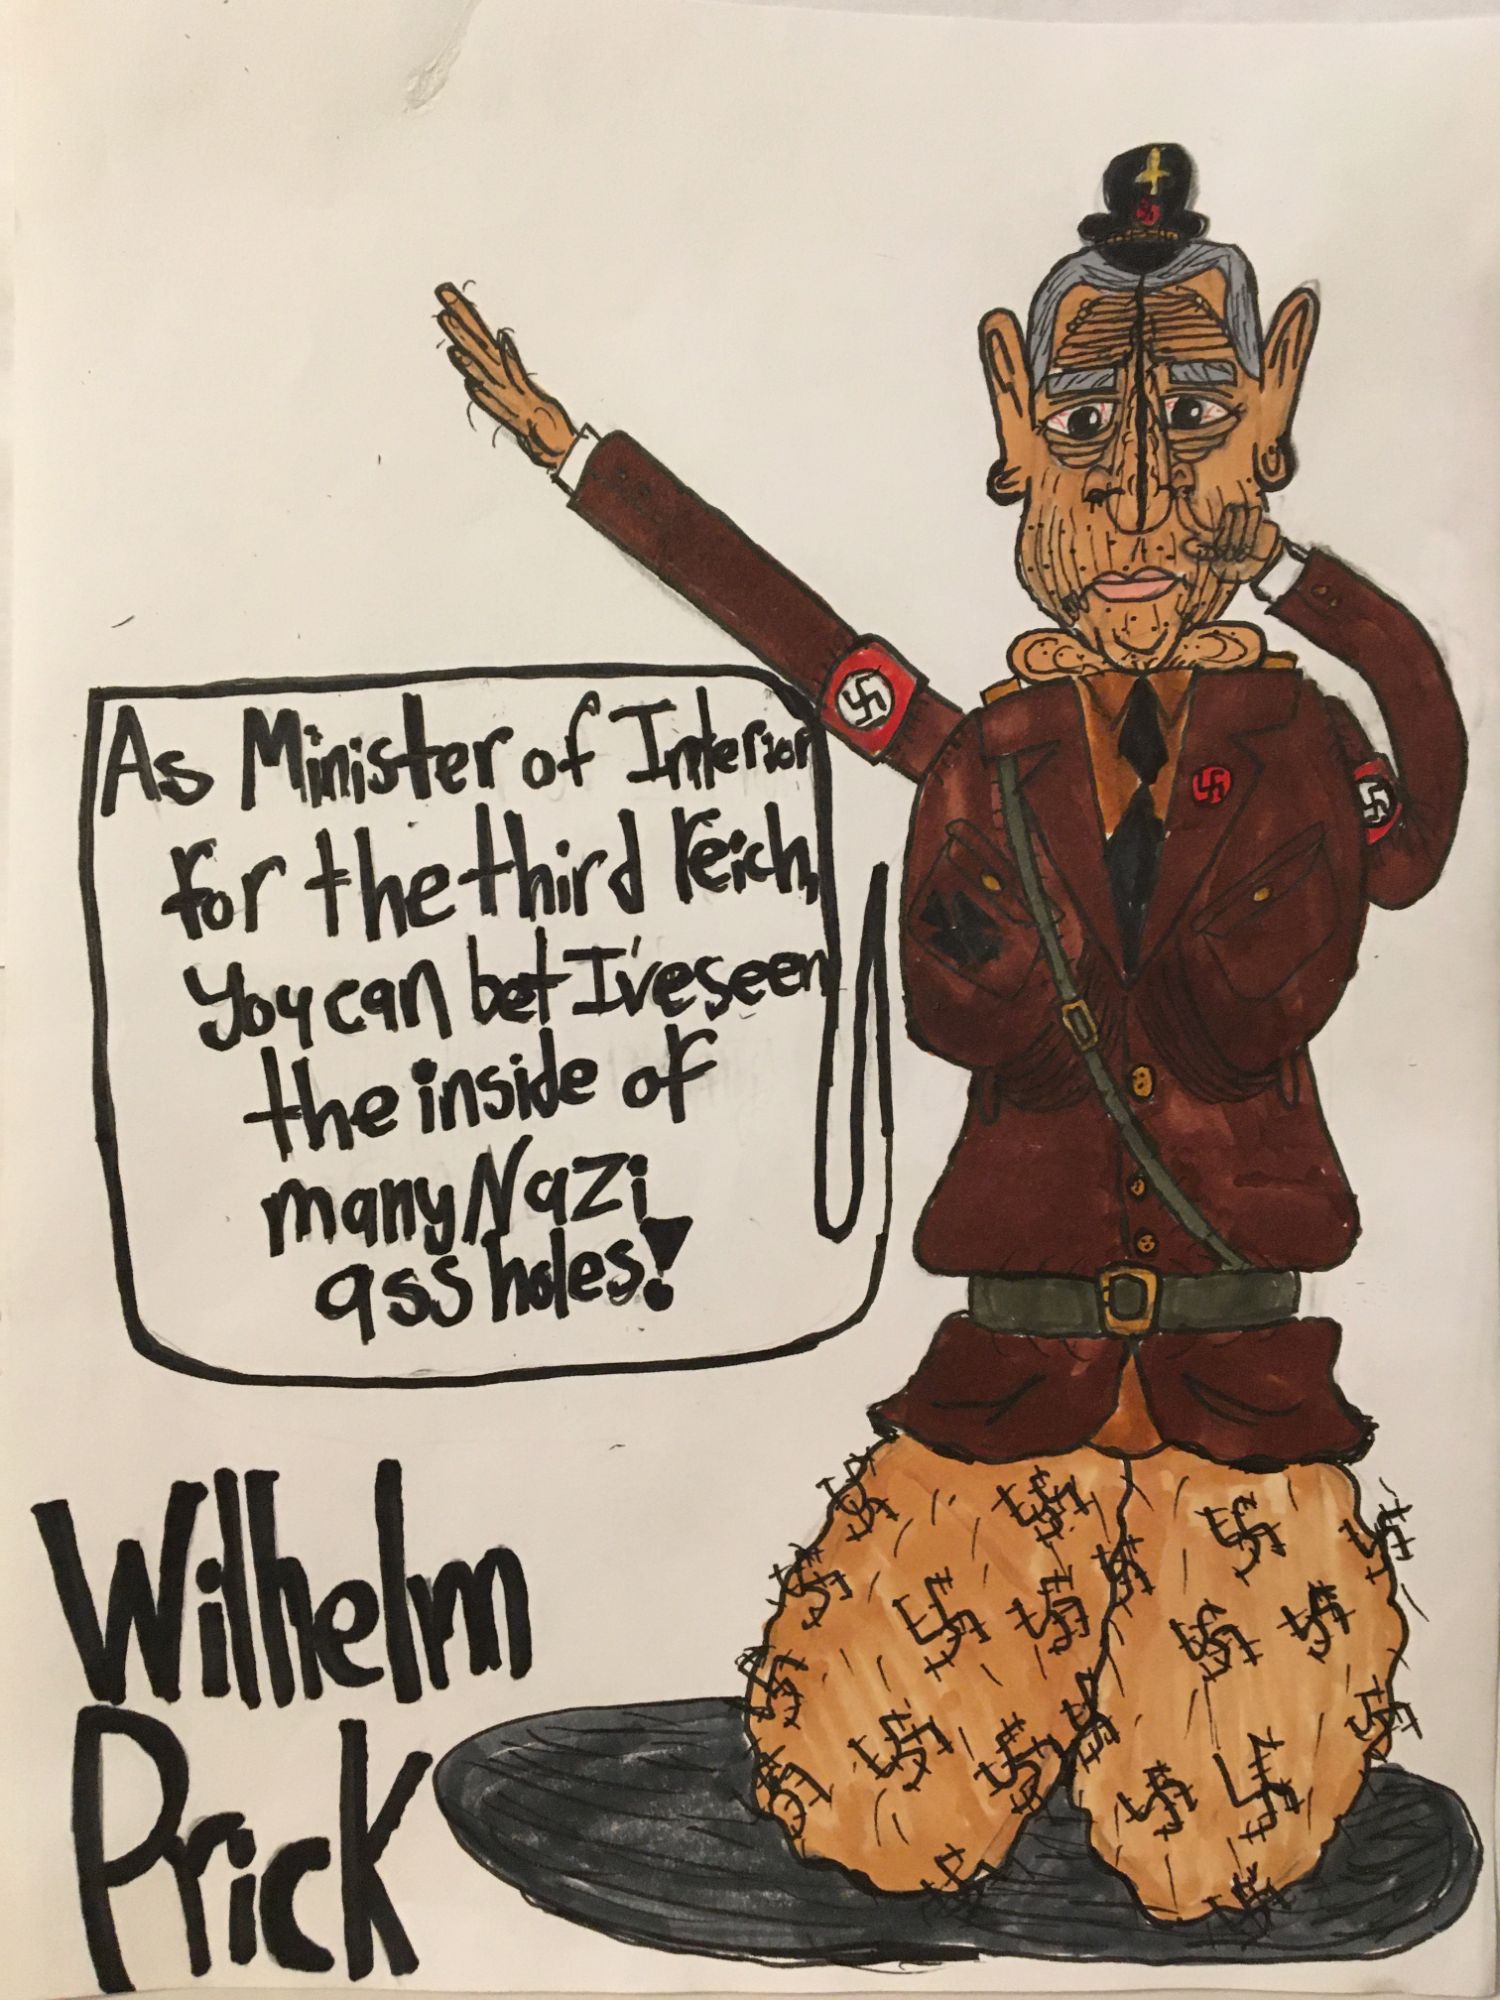 As Minister of Interior
for the third reich,
you can bet I've seen
the inside of
many Nazi
ass holes!
Wilhelm
Prick